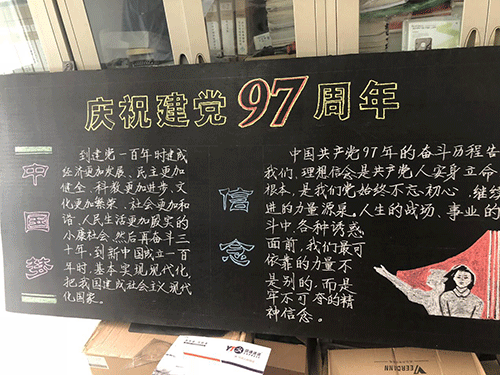 庆祝建党97周年
中国梦
到建党一百年时建成
经济更加发展、民主更加
健全、科教更加进步、文
化更加繁荣、社会更加和
谐、人民生活更加殷实的
小康社会,然后再奋斗三
十年,到新中国成立一百
年时,基本实现现代化,
把我国建成社会主义现代
化国家。
信念
中国共产党97年的奋斗历程告
我们,理想信念是共产党人安身立命
根本,是我们党始终不忘初心、继续
进的力量源泉。人生的战场、事业的
斗中各种诱惑
面前,我们最可
依靠的力量不
是别的,而是
牢不可夺的精
神信念。
VEERCANN